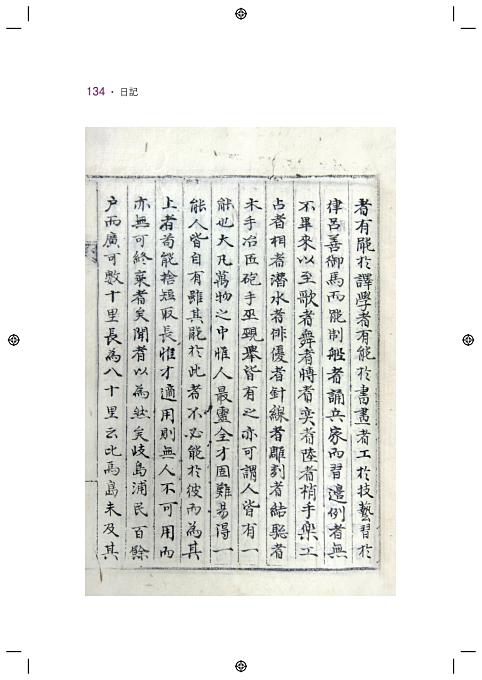 134 · 日記
者有能於譯學者有能於書畫者工於技藝習於
律呂善御馬而能制船者誦兵家而習邊例者無
不畢來以至歌者舞者博者奕者陸者梢手樂工
占者相者潛水者俳優者針線者雕刻者結驄者
木手冶匠砲手巫覡畢皆有之亦可謂人皆有一
能也大凡萬物之中惟人最靈全才固難易得一
能人皆自有雖其能於此者不必能於彼而為其
上者苟能捨短取長惟才適用則無人不可用而
亦無可終棄者矣聞者以為然矣岐島浦民百餘
户而廣可數十里長為八十里云比馬島未及其